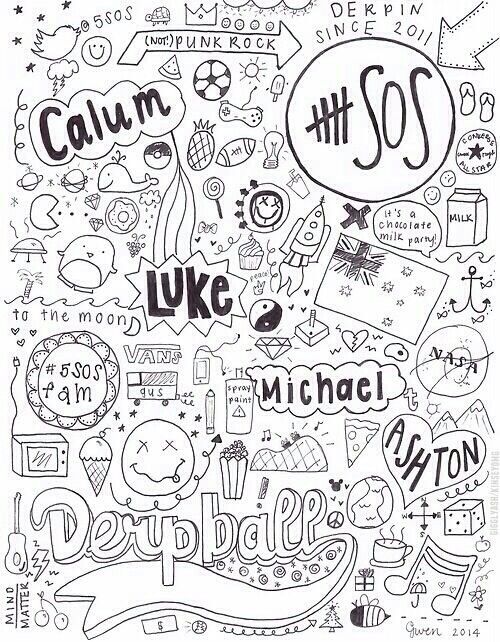 @5SOS
DERPIN
SINCE 2011
(NOT!) PUNK ROCK
Calum
SOS
CONVERSE
ALL STAR
It's a
chocolate
milk party!
MILK
peace!
LUKE
to the moon
#5SOS
fam
VANS
gus
spray
paint
Michael
NASA
t
ASHTON
Derpball
N
W E
S
MIND
MATTER
$
Gwen 2014